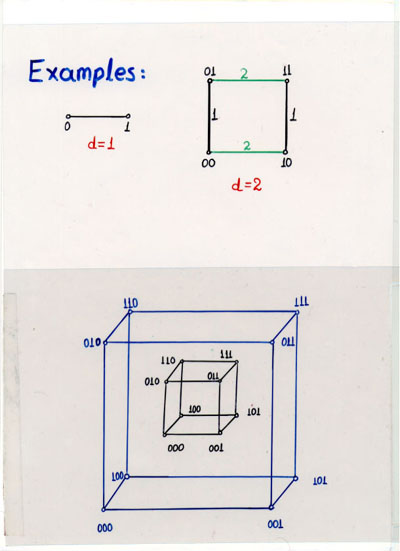 Examples:
0 1
d=1
01 2 11
1 1
2
00 10
d=2
110 111
010 011
110 111
010 011
100 101
000 001
100 101
000 001